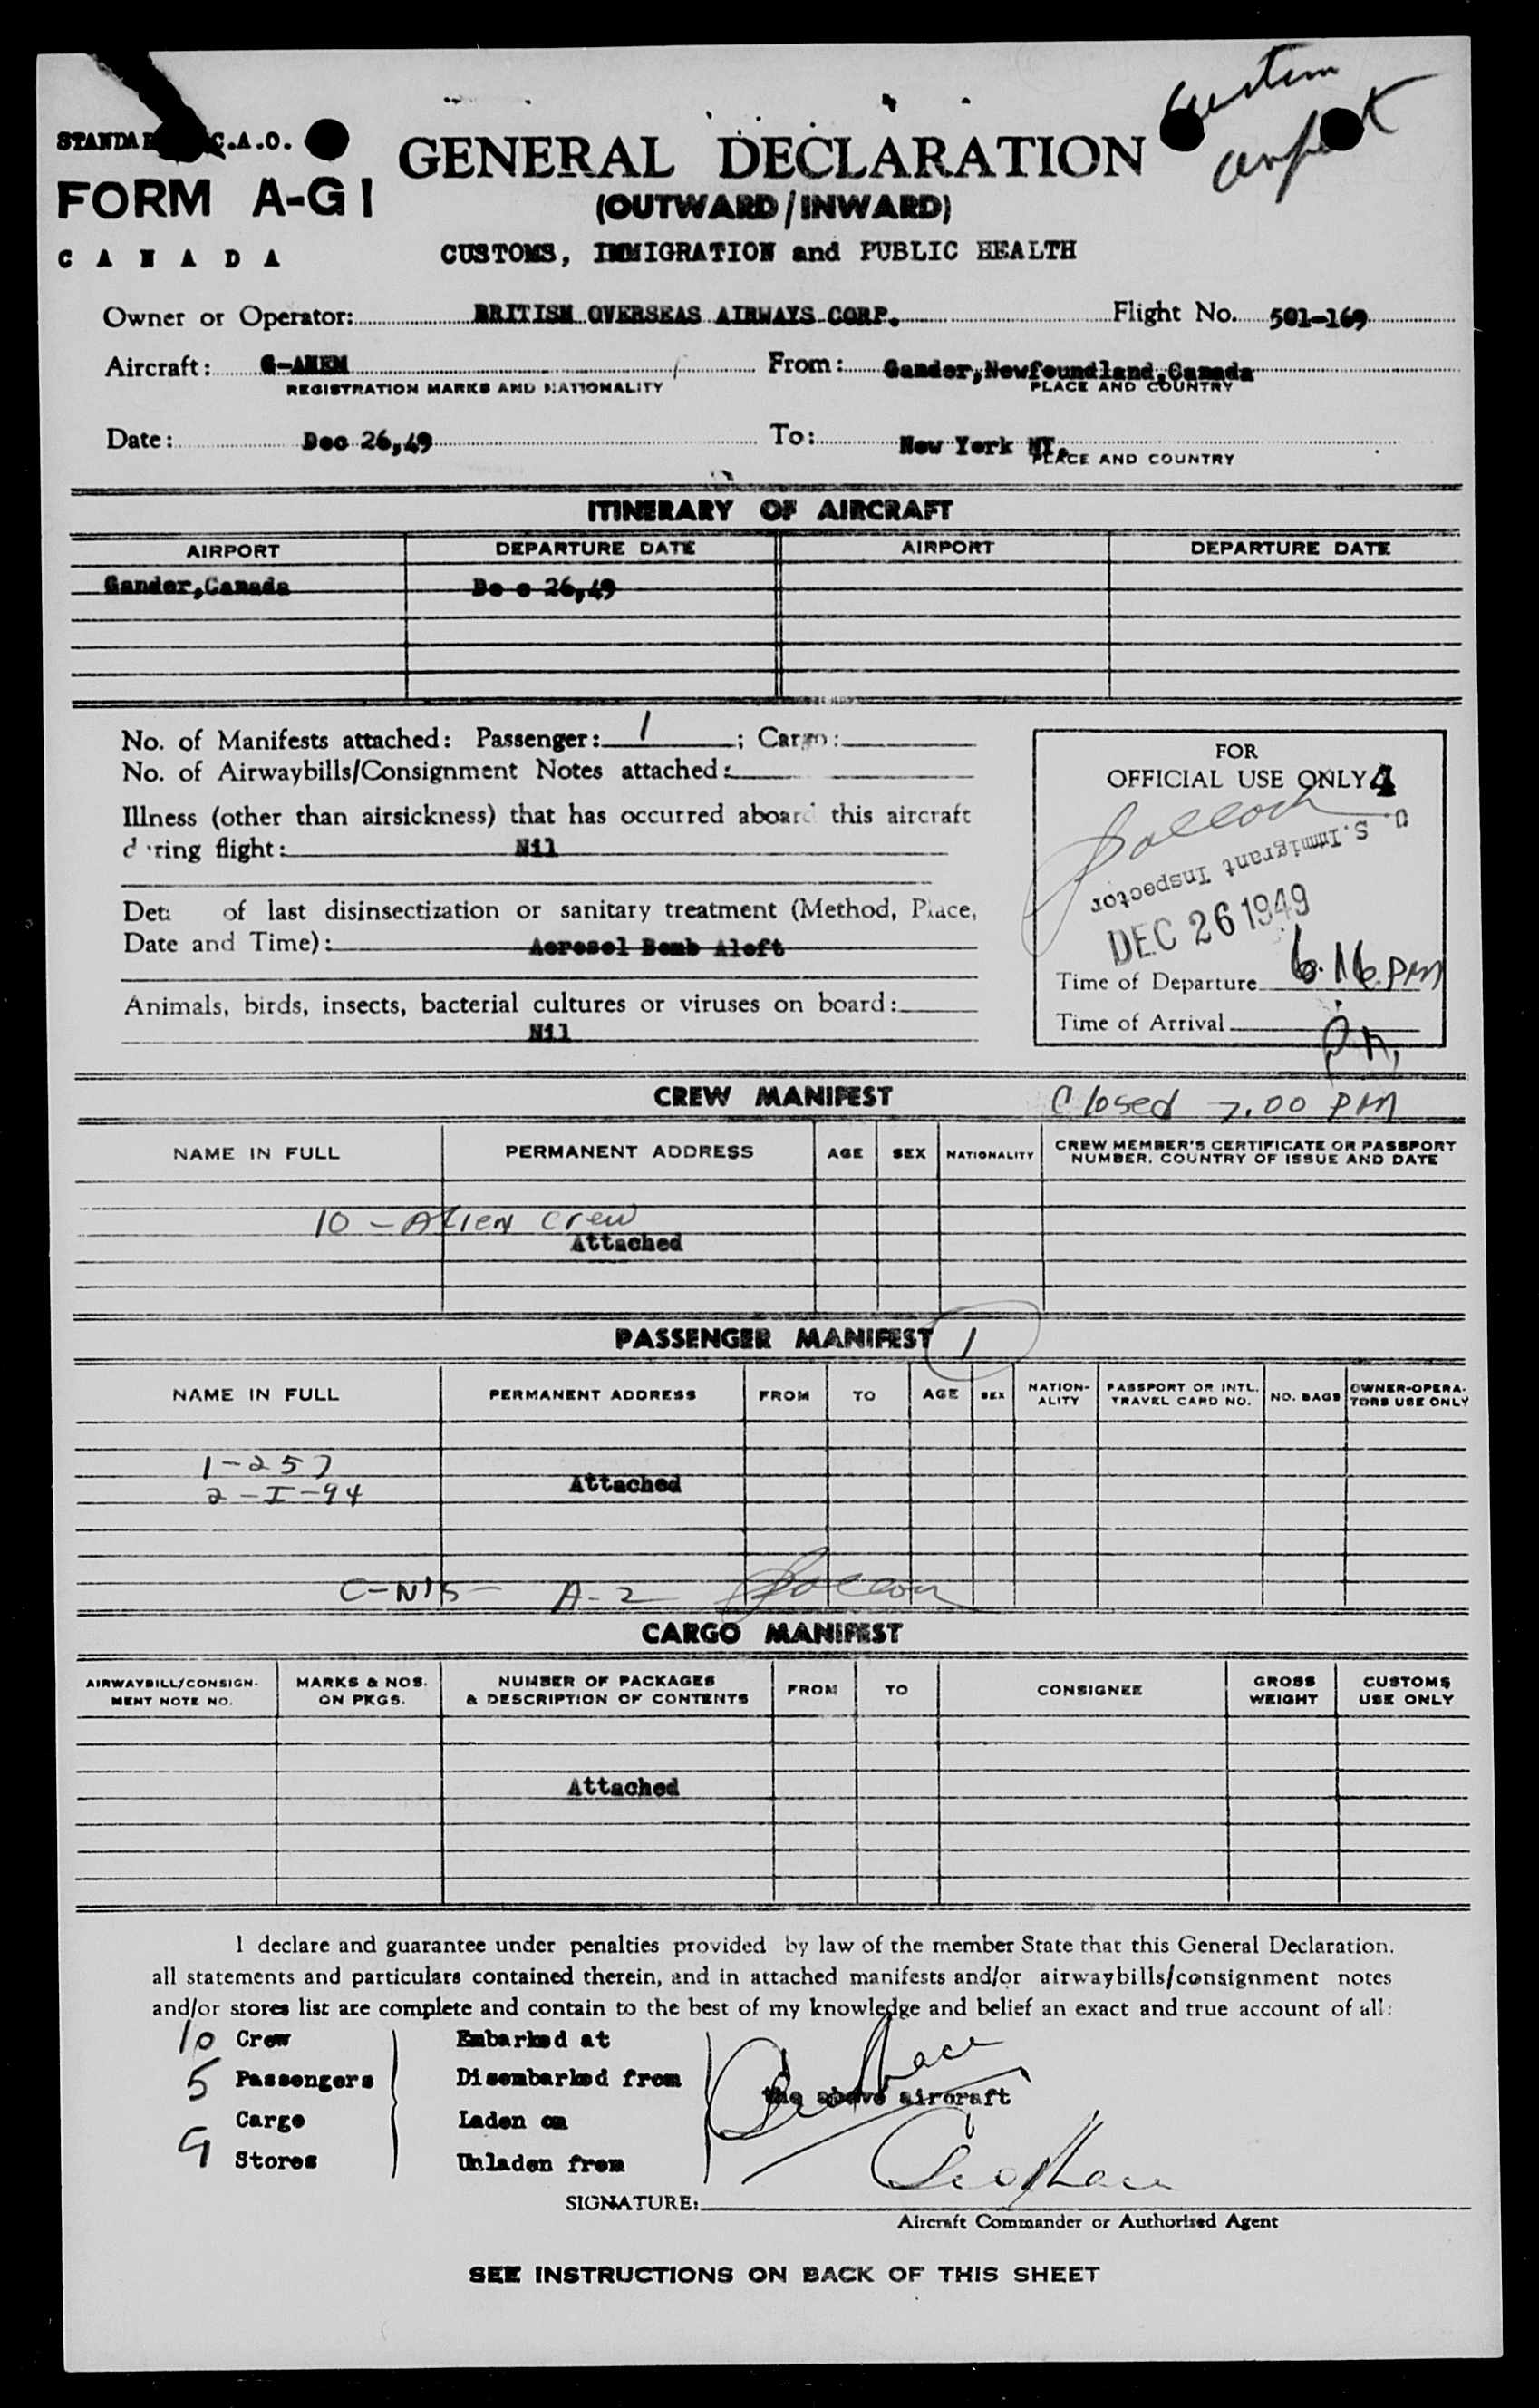 STANDA C.A.O.
FORM A-G1
CANADA
GENERAL DECLARATION
(OUTWARD/INWARD)
CUSTOMS, IMMIGRATION and PUBLIC HEALTH
Owner or Operator: BRITISH OVERSEAS AIRWAYS CORP. Flight No. 501-169
Aircraft: From: Gander, Newfoundland, Canada
REGISTRATION MARKS AND NATIONALITY PLACE AND COUNTRY
Date: Dec 26,49 To: New York NY.
PLACE AND COUNTRY
ITINERARY OF AIRCRAFT
AIRPORT DEPARTURE DATE AIRPORT DEPARTURE DATE
Gander,Canada De c 26,49
No. of Manifests attached: Passenger: 1 ; Cargo:
No. of Airwaybills/Consignment Notes attached:
Illness (other than airsickness) that has occurred aboard this aircraft
d ring flight: Nil
Det of last disinsectization or sanitary treatment (Method, Place,
Date and Time): Aerosol Bomb Aloft
Animals, birds, insects, bacterial cultures or viruses on board:
Nil
FOR
OFFICIAL USE ONLY 4
U. S. Immigrant Inspector
DEC 26 1949
Time of Departure 6.16 PM
Time of Arrival
CREW MANIFEST
Closed 7.00 PM
NAME IN FULL PERMANENT ADDRESS AGE SEX NATIONALITY CREW MEMBER'S CERTIFICATE OR PASSPORT NUMBER, COUNTRY OF ISSUE AND DATE
10 - Alien Crew
Attached
PASSENGER MANIFEST 1
NAME IN FULL PERMANENT ADDRESS FROM TO AGE SEX NATION-ALITY PASSPORT OR INTL. TRAVEL CARD NO. NO. BAGS OWNER-OPERA-TORS USE ONLY
1-257
Attached
2-I-94
A-2
CARGO MANIFEST
AIRWAYBILL/CONSIGN-MENT NOTE NO. MARKS & NOS. ON PKGS. NUMBER OF PACKAGES & DESCRIPTION OF CONTENTS FROM TO CONSIGNEE GROSS WEIGHT CUSTOMS USE ONLY
Attached
I declare and guarantee under penalties provided by law of the member State that this General Declaration.
all statements and particulars contained therein, and in attached manifests and/or airwaybills/consignment notes
and/or stores list are complete and contain to the best of my knowledge and belief an exact and true account of all:
10 Crew Embarked at
5 Passengers Disembarked from the above aircraft
Cargo Laden on
Stores Unladen from
SIGNATURE:
Aircraft Commander or Authorized Agent
SEE INSTRUCTIONS ON BACK OF THIS SHEET